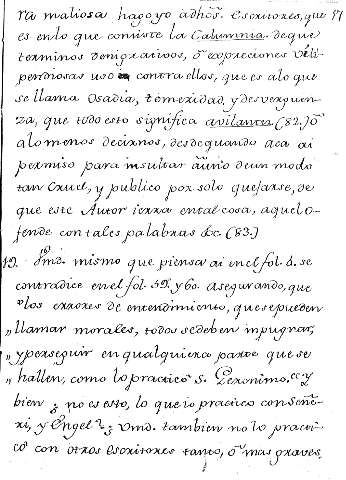 ra maliosa hago yo à dhōs. escritores, que 57
es en lo que consiste la Calumnia de que
terminos denigrativos, ò expreciones vili-
pendiosas uso contra ellos, que es alo que
se llama Osadia, temeridad, y desverguen-
za, que todo esto significa avilantes (82.) ò
alo menos decirnos, desde quando acà ai
permiso para insultar à uno de un modo
tan cruel, y publico por solo quejarse, de
que este Autor ierra en tal cosa, aquel o-
fende con tales palabras &c. (83.)
19. Vmd. mismo que piensa asi en el fol. 4. se
contradice en el fol. 59. y 60. asegurando, que
"los errores de entendimiento, que se pueden
" llamar morales, todos se deben impugnar,
" y perseguir en qualquiera parte que se
" hallen, como lo practicò S. Geronimo. &c. y
bien ¿ no es esto, lo que io practico con Señe-
ri, y Engel? ¿ Vmd. tambien no lo practi-
cò con otros escritores tanto, ò mas graves